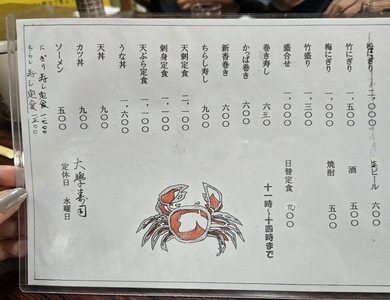 竹にぎり 一、五〇〇
梅にぎり 一、一〇〇
竹盛り 一、三〇〇
盛合せ 一、〇〇〇
巻き寿し
かっぱ巻き 六〇〇
新香巻き 六〇〇
ちらし寿し 九〇〇
天刺定食 二、一〇〇
刺身定食 一、一〇〇
天ぷら定食 一、一〇〇
うな丼 一、六〇〇
天丼 九〇〇
カツ丼 九〇〇
ソーメン 五〇〇
にぎり寿し定食
ちらし寿し定食
生ビール 六〇〇
酒 五〇〇
焼酎 五〇〇
日替定食 九〇〇
十一時〜十四時まで
大學寿司
定休日 水曜日